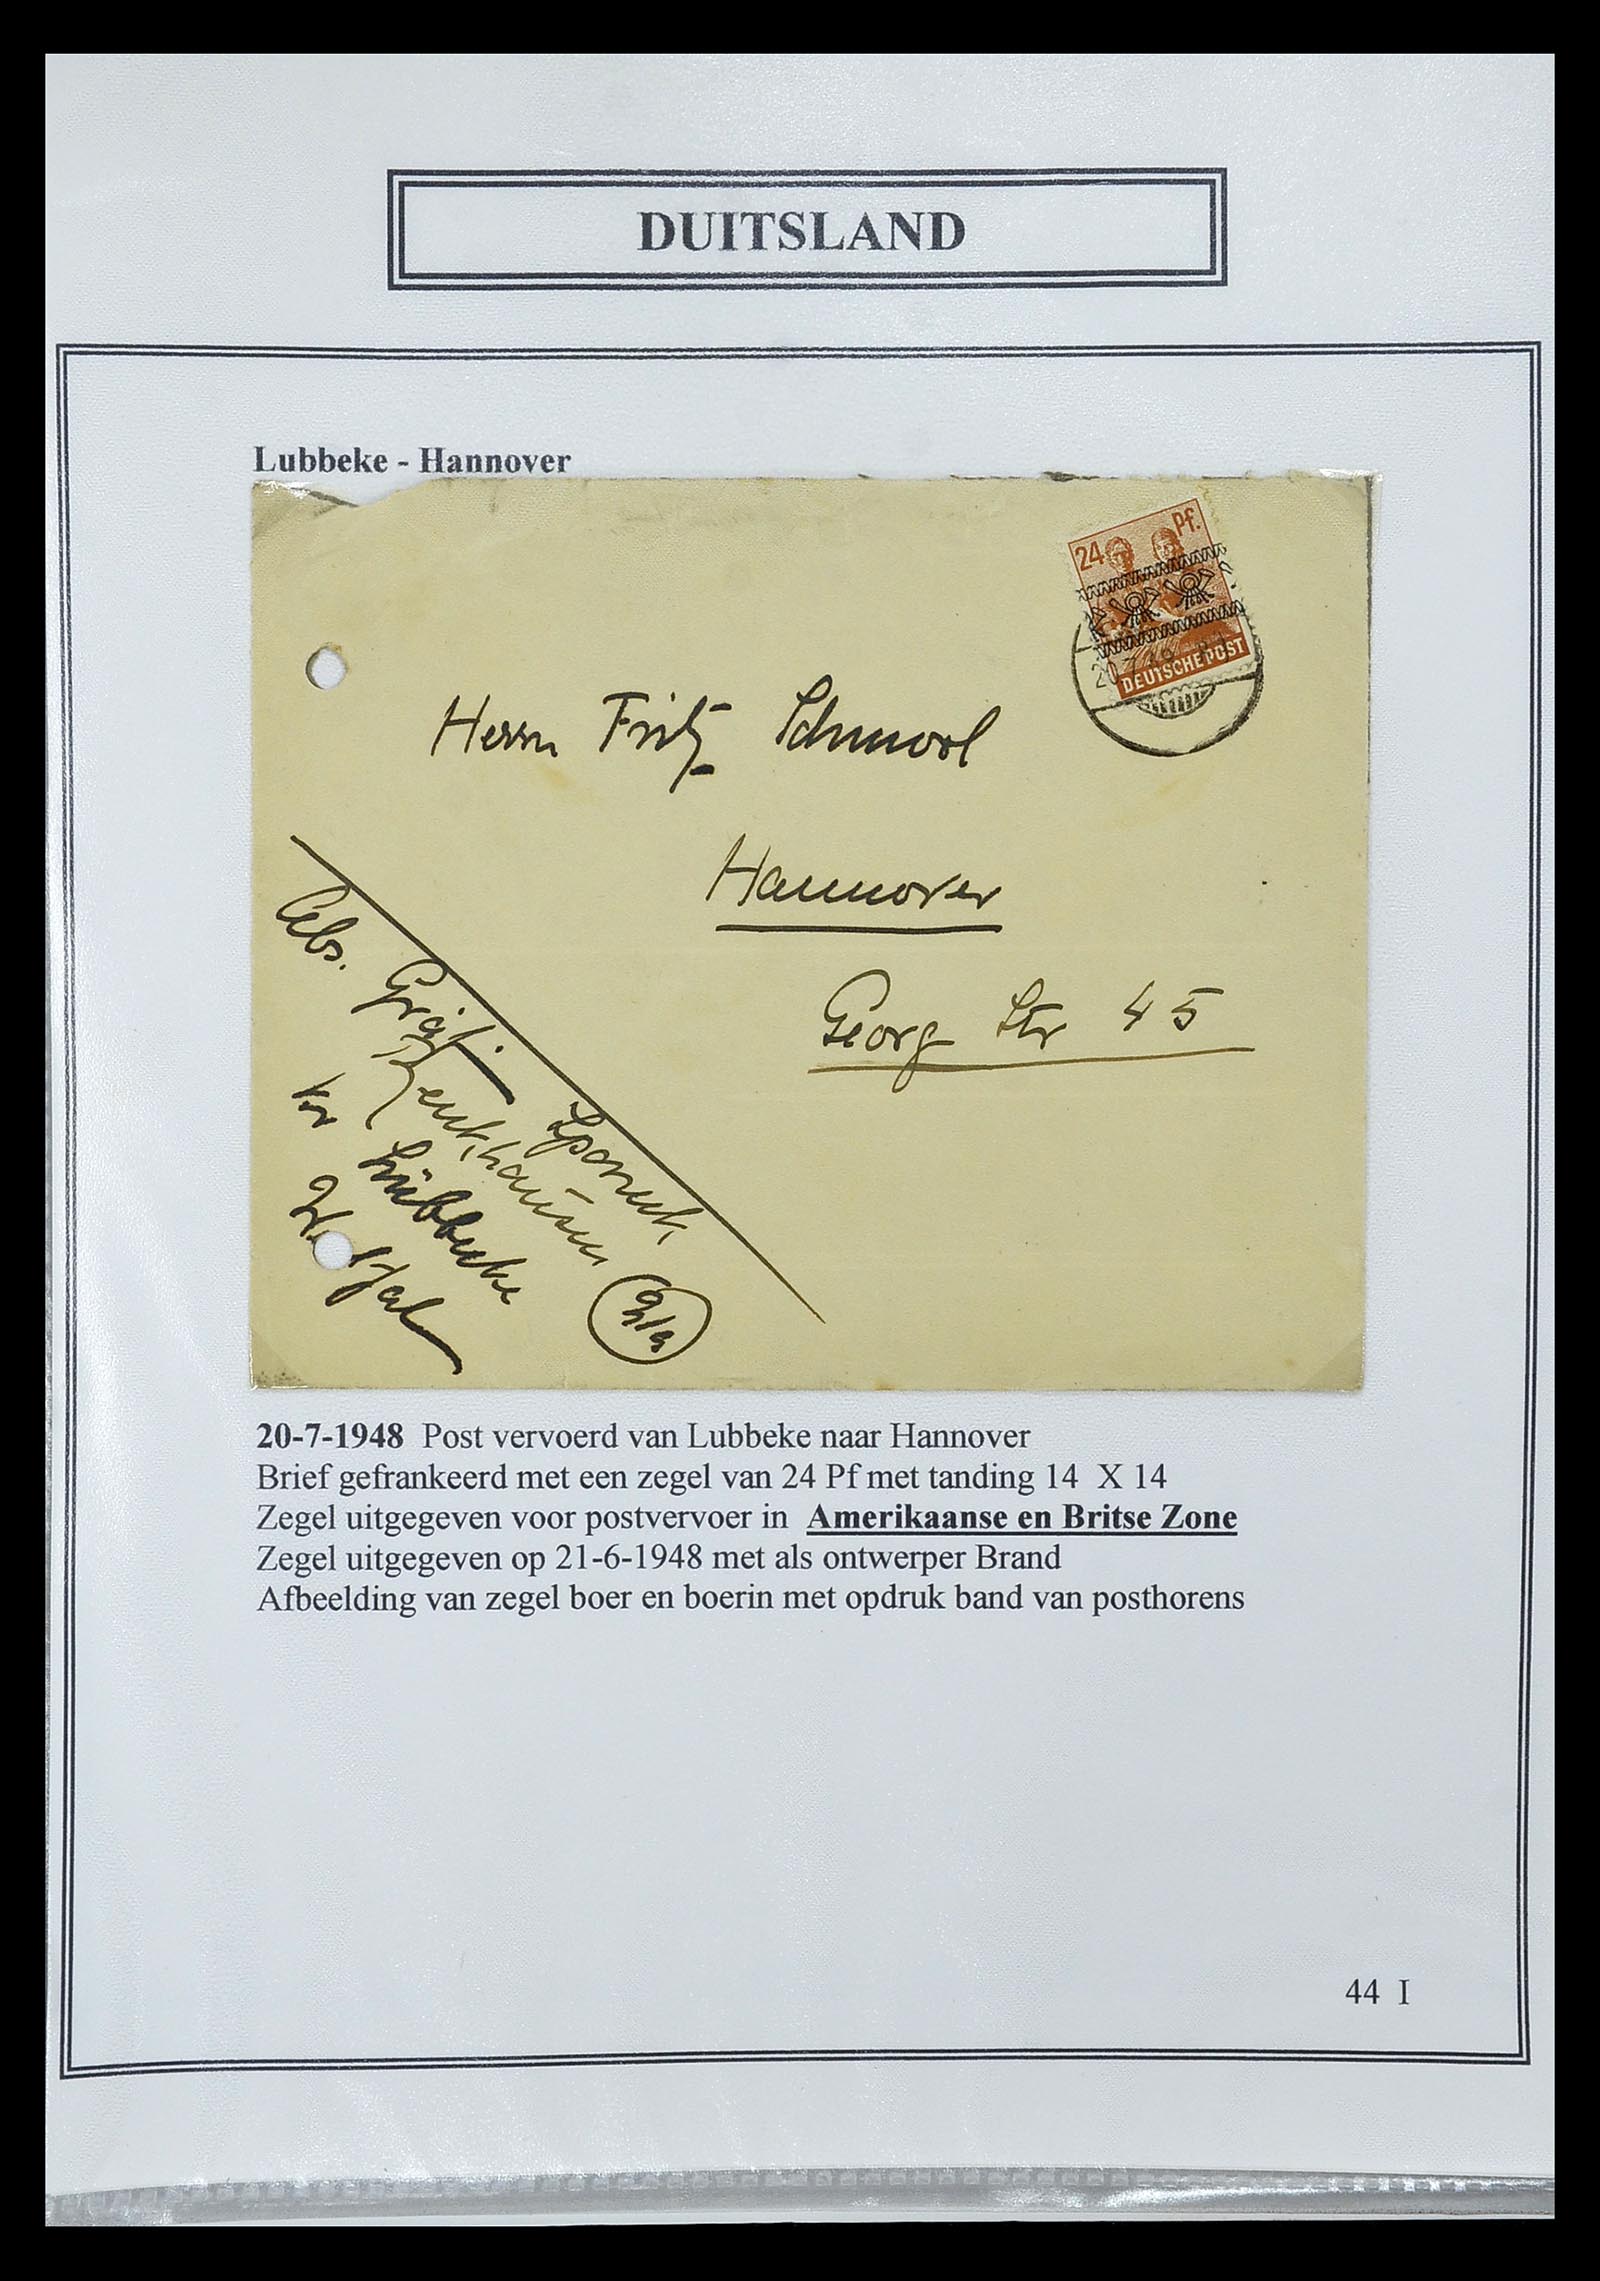 DUITSLAND
Lubbeke - Hannover
24 Pf.
DEUTSCHE POST
Herrn Fritz
Hannover
Georg Str 45
Abs. Gräfin
Lübbecke
Westfal
20-7-1948 Post vervoerd van Lubbeke naar Hannover
Brief gefrankeerd met een zegel van 24 Pf met tanding 14 X 14
Zegel uitgegeven voor postvervoer in Amerikaanse en Britse Zone
Zegel uitgegeven op 21-6-1948 met als ontwerper Brand
Afbeelding van zegel boer en boerin met opdruk band van posthorens
44 I